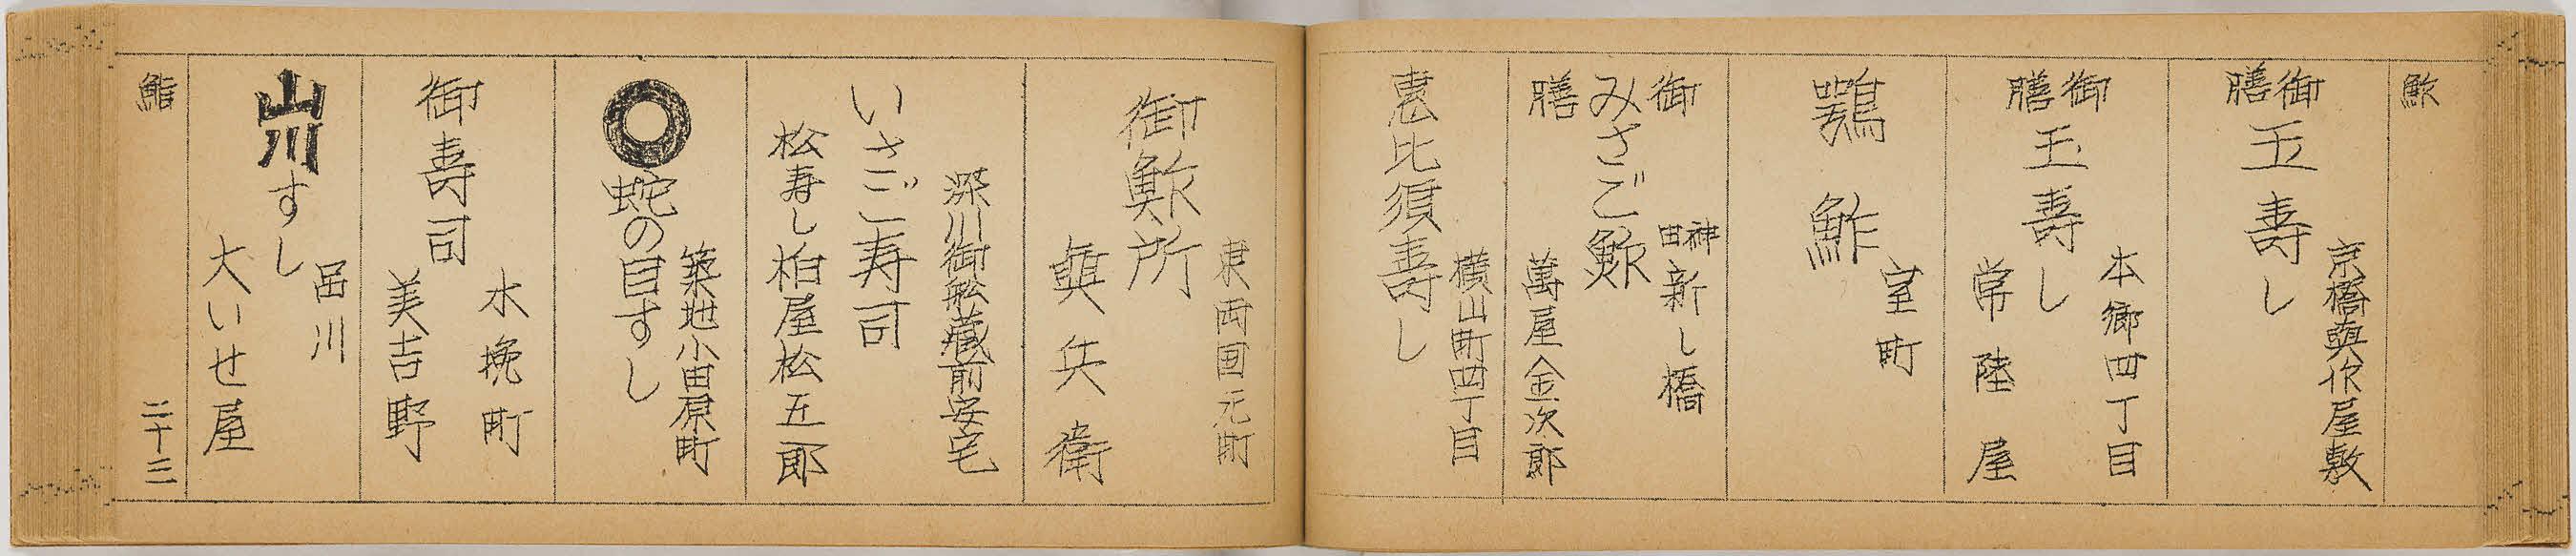 鮓
御膳
玉壽し
京橋與作屋敷
御膳
玉壽し
本郷四丁目
常陸屋
鶚鮓
室町
御膳
みさご鮓
神田新し橋
萬屋金次郎
恵比須壽し
横山町四丁目
東両国元町
御鮓所
與兵衛
深川御舩蔵前安宅
いさご寿司
松寿し
柏屋松五郎
蛇の目すし
築地小田原町
御壽司
木挽町
美吉野
山川すし
品川
大いせ屋
鮨
二十三